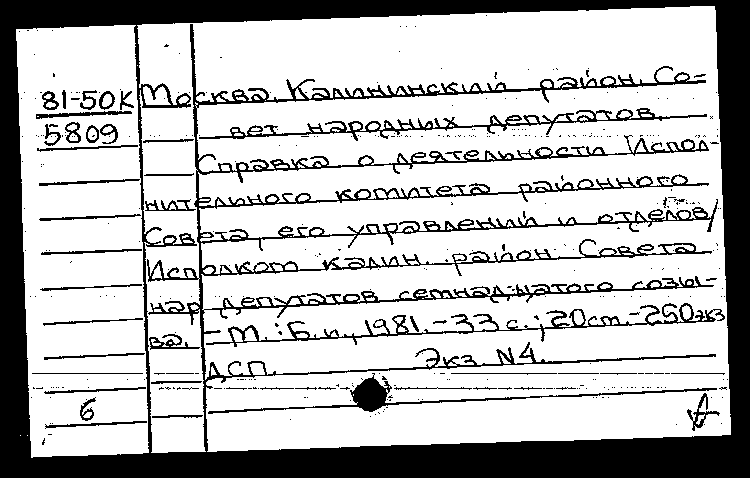 81-50К Москва. Калининский район. Со=
5809 вет народных депутатов.
Справка о деятельности Испол-
нительного комитета районного
Совета, его управлений и отделов/
Исполком калин. район. Совета
нар депутатов семнадцатого созы-
ва. – М. : Б. и., 1981. – 33 с. ; 20 cm. – 250 экз
ДСП. Экз N 4.
6